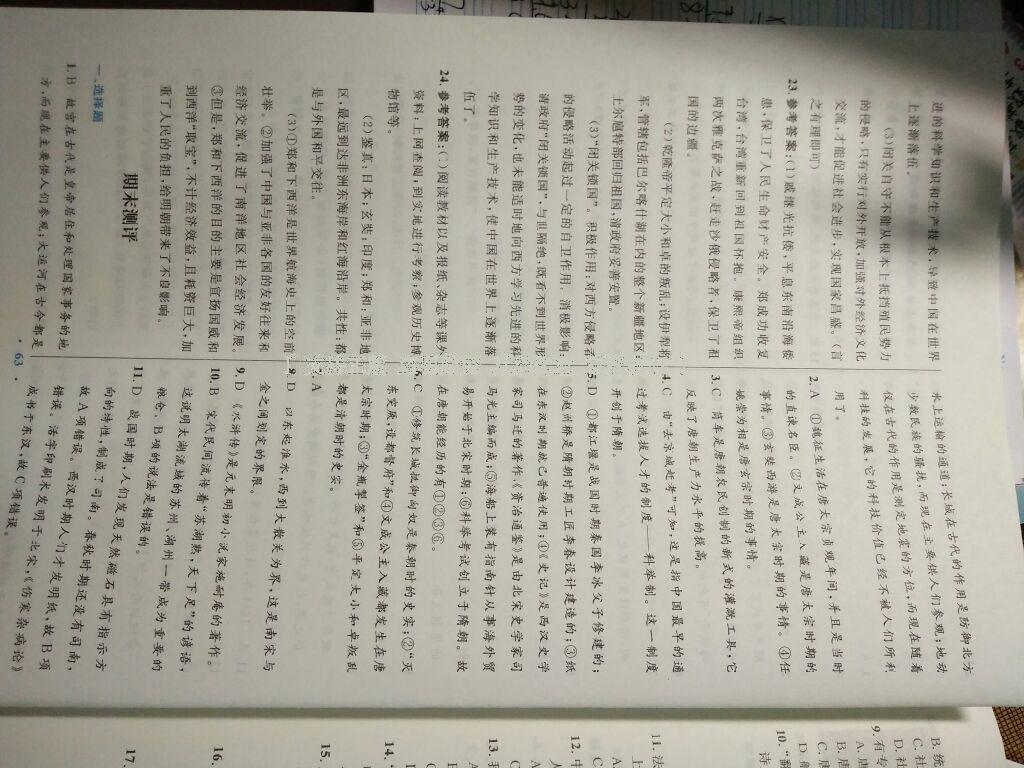 进的科学知识和生产技术,导致中国在世界
上逐渐落伍。
(3)闭关自守不能从根本上抵挡殖民势力
的侵略,只有实行对外开放,加强对外经济文化
交流,才能促进社会进步,实现国家昌盛。(言
之有理即可)
23. 参考答案:(1)戚继光抗倭,平息东南沿海倭
患,保卫了人民生命财产安全。郑成功收复
台湾,台湾重新回到祖国怀抱。康熙帝组织
两次雅克萨之战,赶走沙俄侵略者,保卫了祖
国的边疆。
(2)乾隆帝平定大小和卓的叛乱;设伊犁将
军,管辖包括巴尔喀什湖在内的整个新疆地区;
土尔扈特部回归祖国,清政府妥善安置。
(3)“闭关锁国”。积极作用:对西方侵略者
的侵略活动起过一定的自卫作用。消极影响:
清政府“闭关锁国”,与世隔绝,既看不到世界形
势的变化,也未能适时地向西方学习先进的科
学知识和生产技术,使中国在世界上逐渐落
伍了。
24. 参考答案:(1)阅读教材以及报纸、杂志等课外
资料;上网查阅;到实地进行考察;参观历史博
物馆等。
(2)鉴真:日本;玄奘:印度;郑和:亚非地
区,最远到达非洲东海岸和红海沿岸。共性:都
是与外国和平交往。
(3)①郑和下西洋是世界航海史上的空前
壮举。②加强了中国与亚非各国的友好往来和
经济交流,促进了南洋地区社会经济发展。
③但是,郑和下西洋的目的主要是宣扬国威和
到西洋“取宝”,不计经济效益,且耗资巨大,加
重了人民的负担,给明朝带来了不良影响。
期末测评
一、选择题
1. B 故宫在古代是皇帝居住和处理国家事务的地
方,而现在主要供人们参观;大运河在古今都是
水上运输的通道;长城在古代的作用是防御北方
少数民族的骚扰,而现在主要供人们参观;地动
仪在古代的作用是测定地震的方位,而现在随着
科技的发展,它的科技价值已经不被人们所利
用了。
2. A ①魏征生活在唐太宗贞观年间,并且是当时
的直谏名臣。②文成公主入藏是唐太宗时期的
事情。③玄奘西游是唐太宗时期的事情。④任
姚崇为相是唐玄宗时期的事情。
3. C 筒车是唐朝农民创制的新式的灌溉工具,它
反映了唐朝生产力水平的提高。
4. C 由“去京城赶考”可知,这是指中国最早的通
过考试选拔人才的制度——科举制。这一制度
开创于隋朝。
5. D ①都江堰是战国时期秦国李冰父子修建的;
②赵州桥是隋朝时期工匠李春设计建造的;③纸
在东汉时期就已普遍使用;④《史记》是西汉史学
家司马迁的著作,《资治通鉴》是由北宋史学家司
马光主编而成;⑤海船上装有指南针从事海外贸
易开始于北宋时期;⑥科举考试创立于隋朝。故
在唐朝能经历的有①②③⑥。
6. C ①修筑长城抵御匈奴是秦朝时的史实;②“灭
东突厥,设都督府”和④文成公主入藏都发生在唐
太宗时期;③“金瓶掣签”和⑤平定大小和卓叛乱
都是清朝时的史实。
A
D 以东起淮水,西到大散关为界,这是南宋与
金之间划定的界限。
9. D 《水浒传》是元末明初小说家施耐庵的著作。
10. B 宋代民间流传着“苏湖熟,天下足”的谚语,
这说明太湖流域的苏州、湖州一带成为重要的
粮仓。B项的说法是错误的。
11. D 战国时期,人们发现天然磁石具有指示方
向的特性,制成了司南。春秋时期还没有司南,
故A项错误。西汉时期人们才发明纸,故B项
错误。活字印刷术发明于北宋,《伤寒杂病论》
成书于东汉,故C项错误。
· 63 ·
B. 统
C. 社
D. 社
9. 有专
A. 唐
B. 唐
C. 唐
10. “翻
诗
11. 法
上
12. 中
人
13. 我
14. “
15.
16.
17.